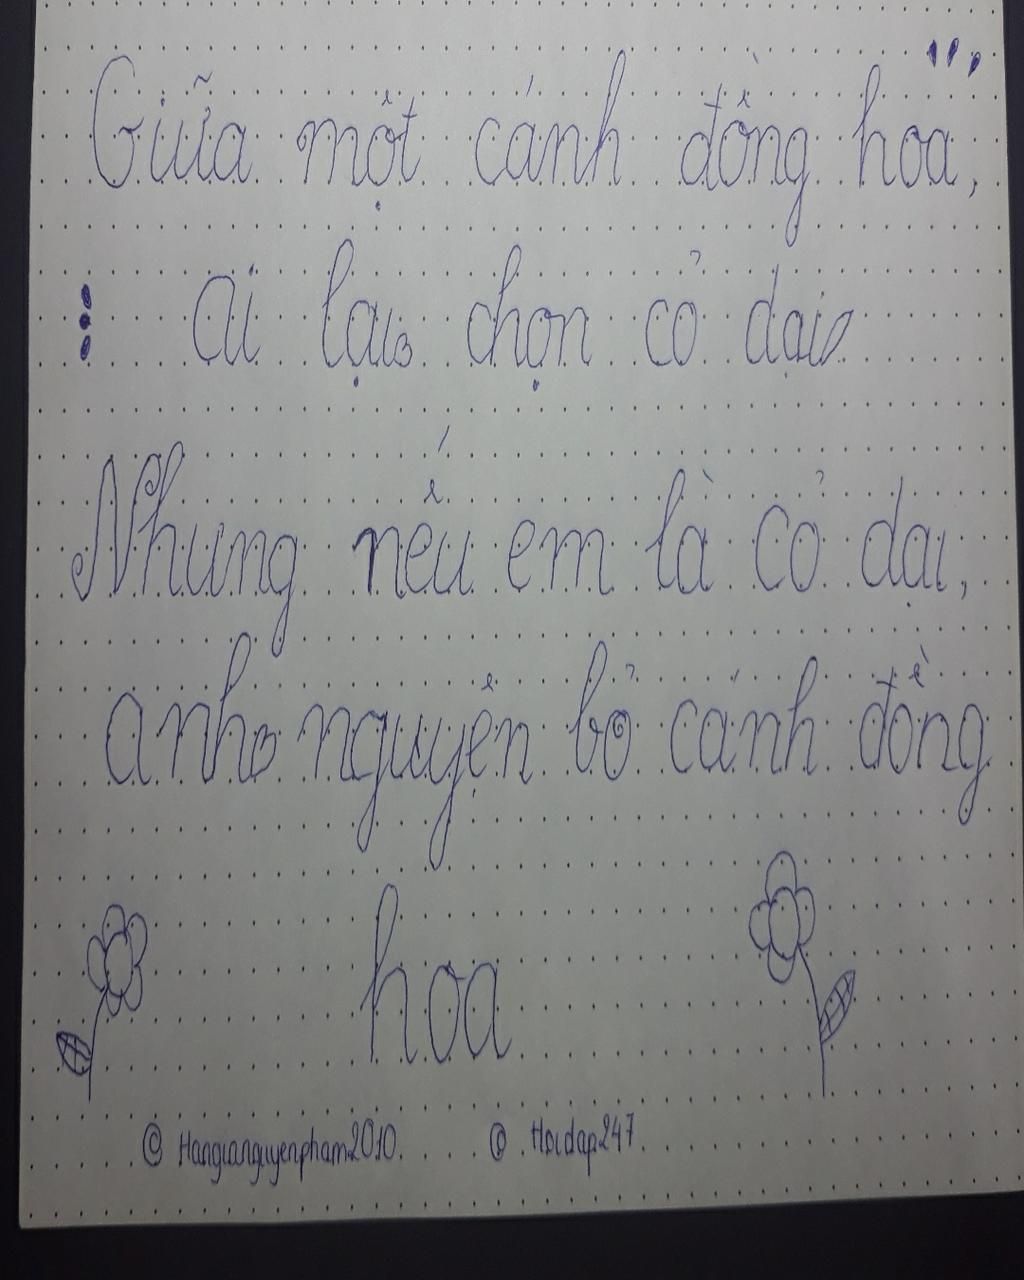 Giữa một cánh đồng hoa,
ai lại chọn cỏ dại
Nhưng nếu em là cỏ dại,
anh nguyện bỏ cánh đồng
hoa
© Hangianguyenpham2010 © Hoidap247